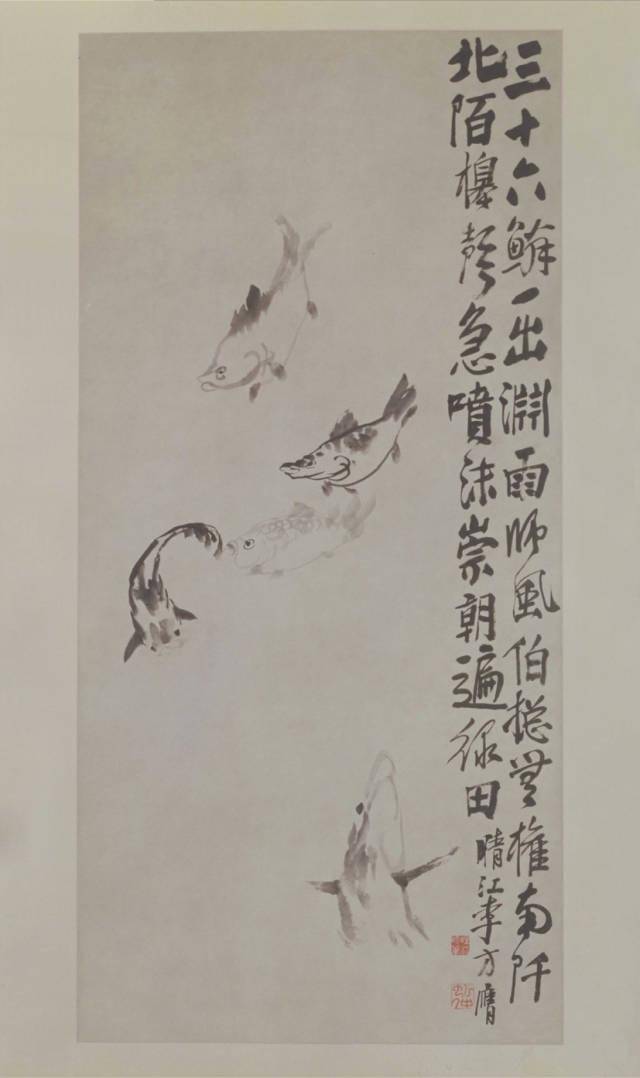 三十六鱗一出淵雨師風伯揔無權南阡
北陌槔聲急噴沫崇朝遍緑田
晴江李方膺